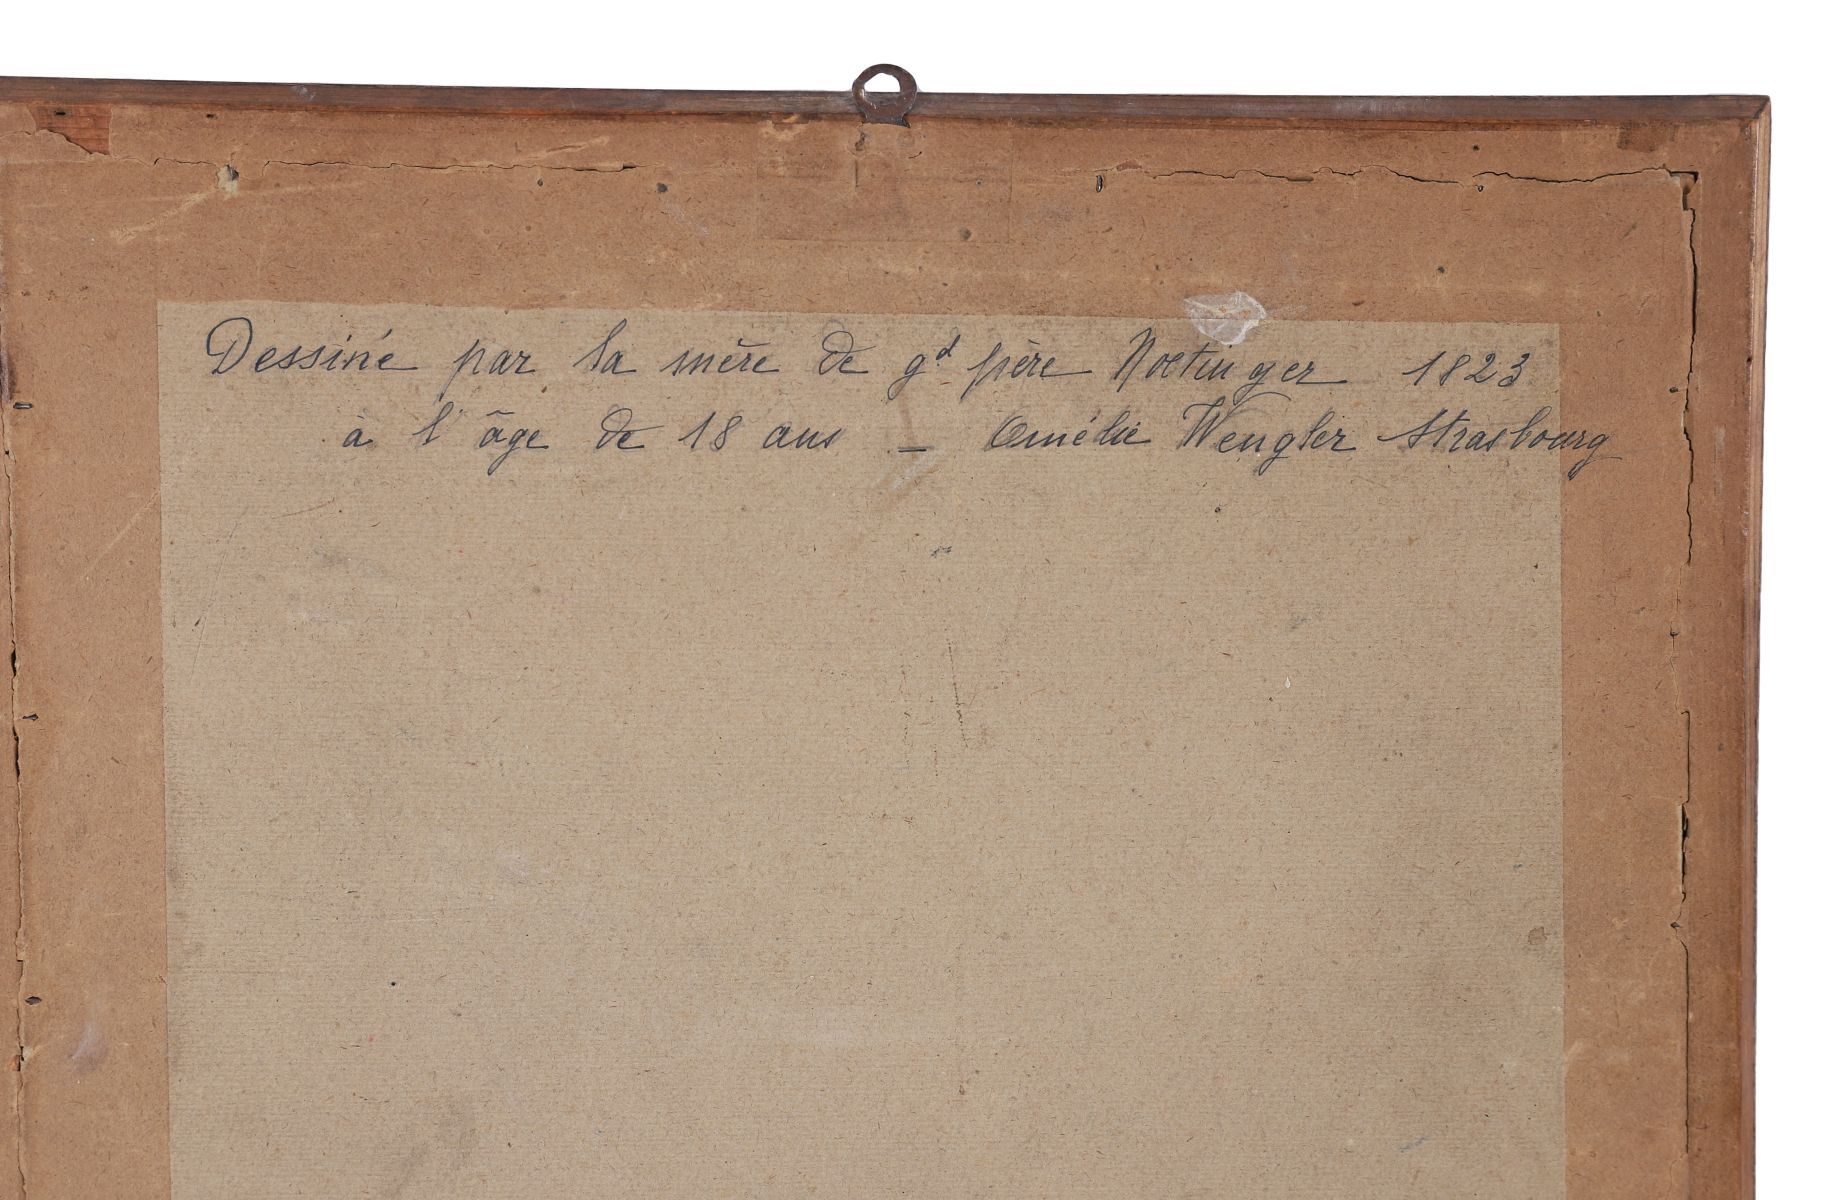 Dessiné par la mère de gd père Noetinger 1823
à l'âge de 18 ans – Amélie Wengler Strasbourg